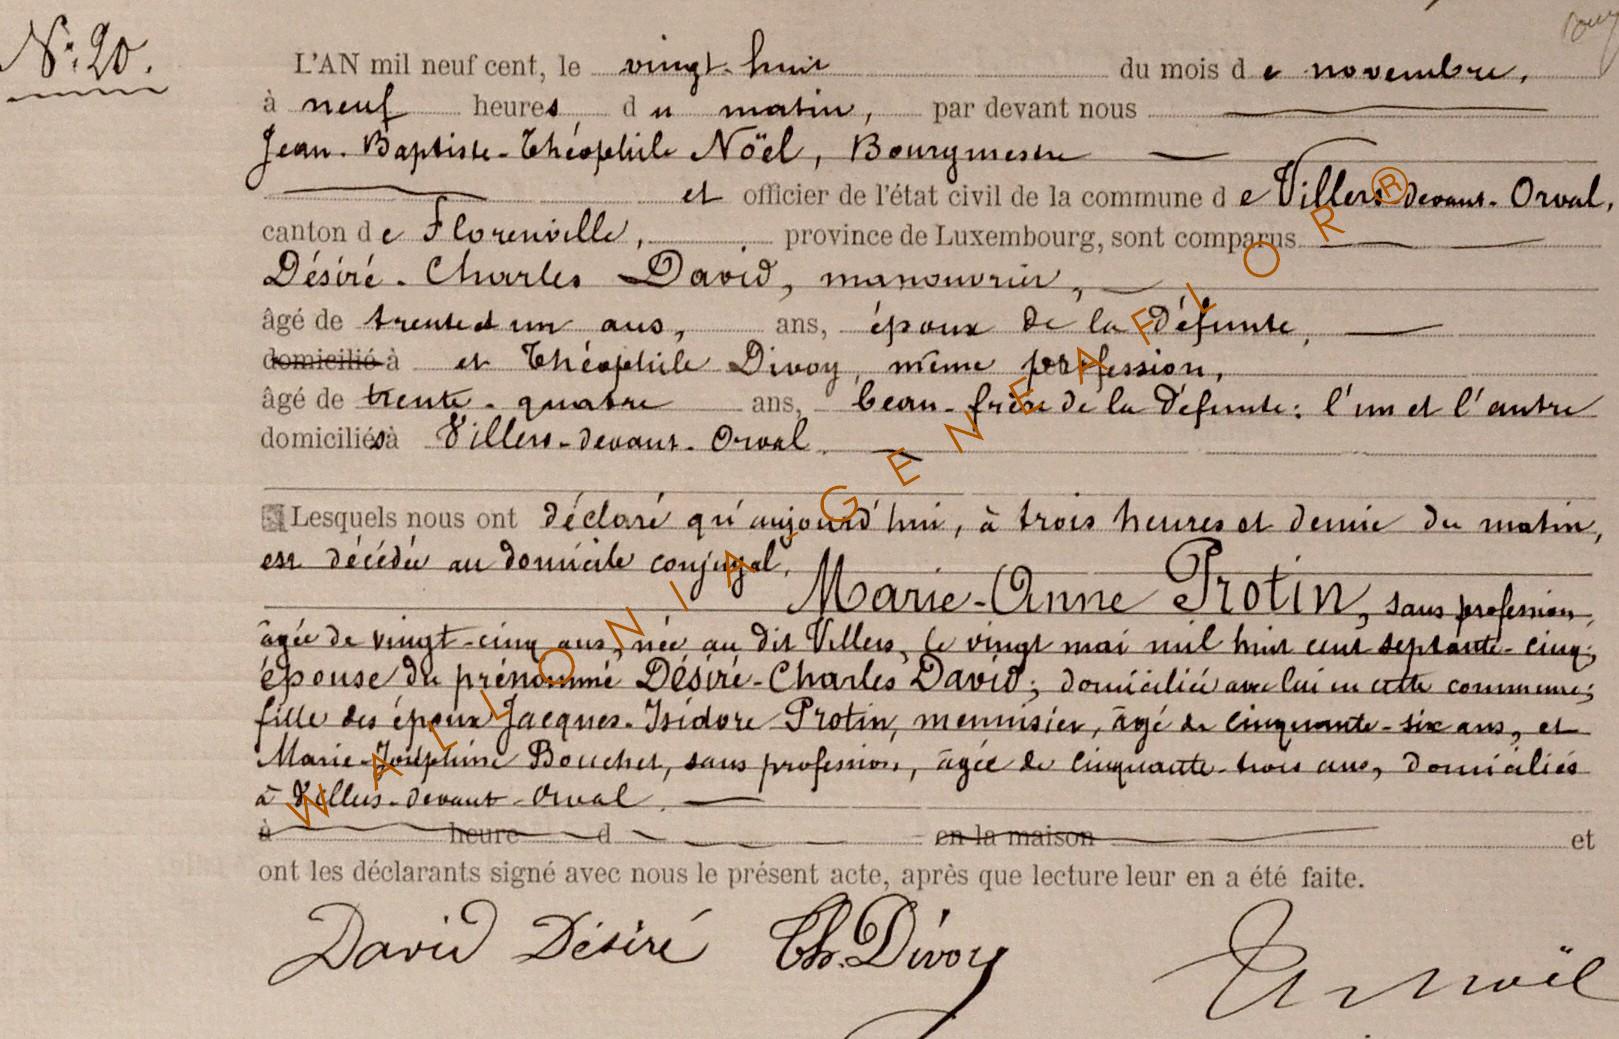 N° 20.
L'AN mil neuf cent, le vingt-huit du mois de novembre,
à neuf heures du matin, par devant nous
Jean-Baptiste-Théophile Noël, Bourgmestre
et officier de l'état civil de la commune de Villers-devant-Orval,
canton de Florenville, province de Luxembourg, sont comparus
Désiré-Charles David, manouvrier,
âgé de trente et un ans, ans, époux de la défunte,
domicilié à et Théophile Divoy, même profession,
âgé de trente-quatre ans, beau-frère de la défunte: l'un et l'autre
domiciliés à Villers-devant-Orval.
Lesquels nous ont déclaré qu'aujourd'hui, à trois heures et demie du matin,
est décédée au domicile conjugal,
Marie-Anne Protin, sans profession,
âgée de vingt-cinq ans, née au dit Villers, le vingt mai mil huit cent septante-cinq;
épouse du prénommé Désiré-Charles David; domiciliée avec lui en cette commune;
fille des époux Jacques-Isidore Protin, menuisier, âgé de cinquante-six ans, et
Marie-Joséphine Bouchet, sans profession, âgée de cinquante-trois ans, domiciliés
à Villers-devant-Orval.
à heure d en la maison et
ont les déclarants signé avec nous le présent acte, après que lecture leur en a été faite.
David Désiré Th. Divoy Noël
WALLONIA-GENEAFLOR®